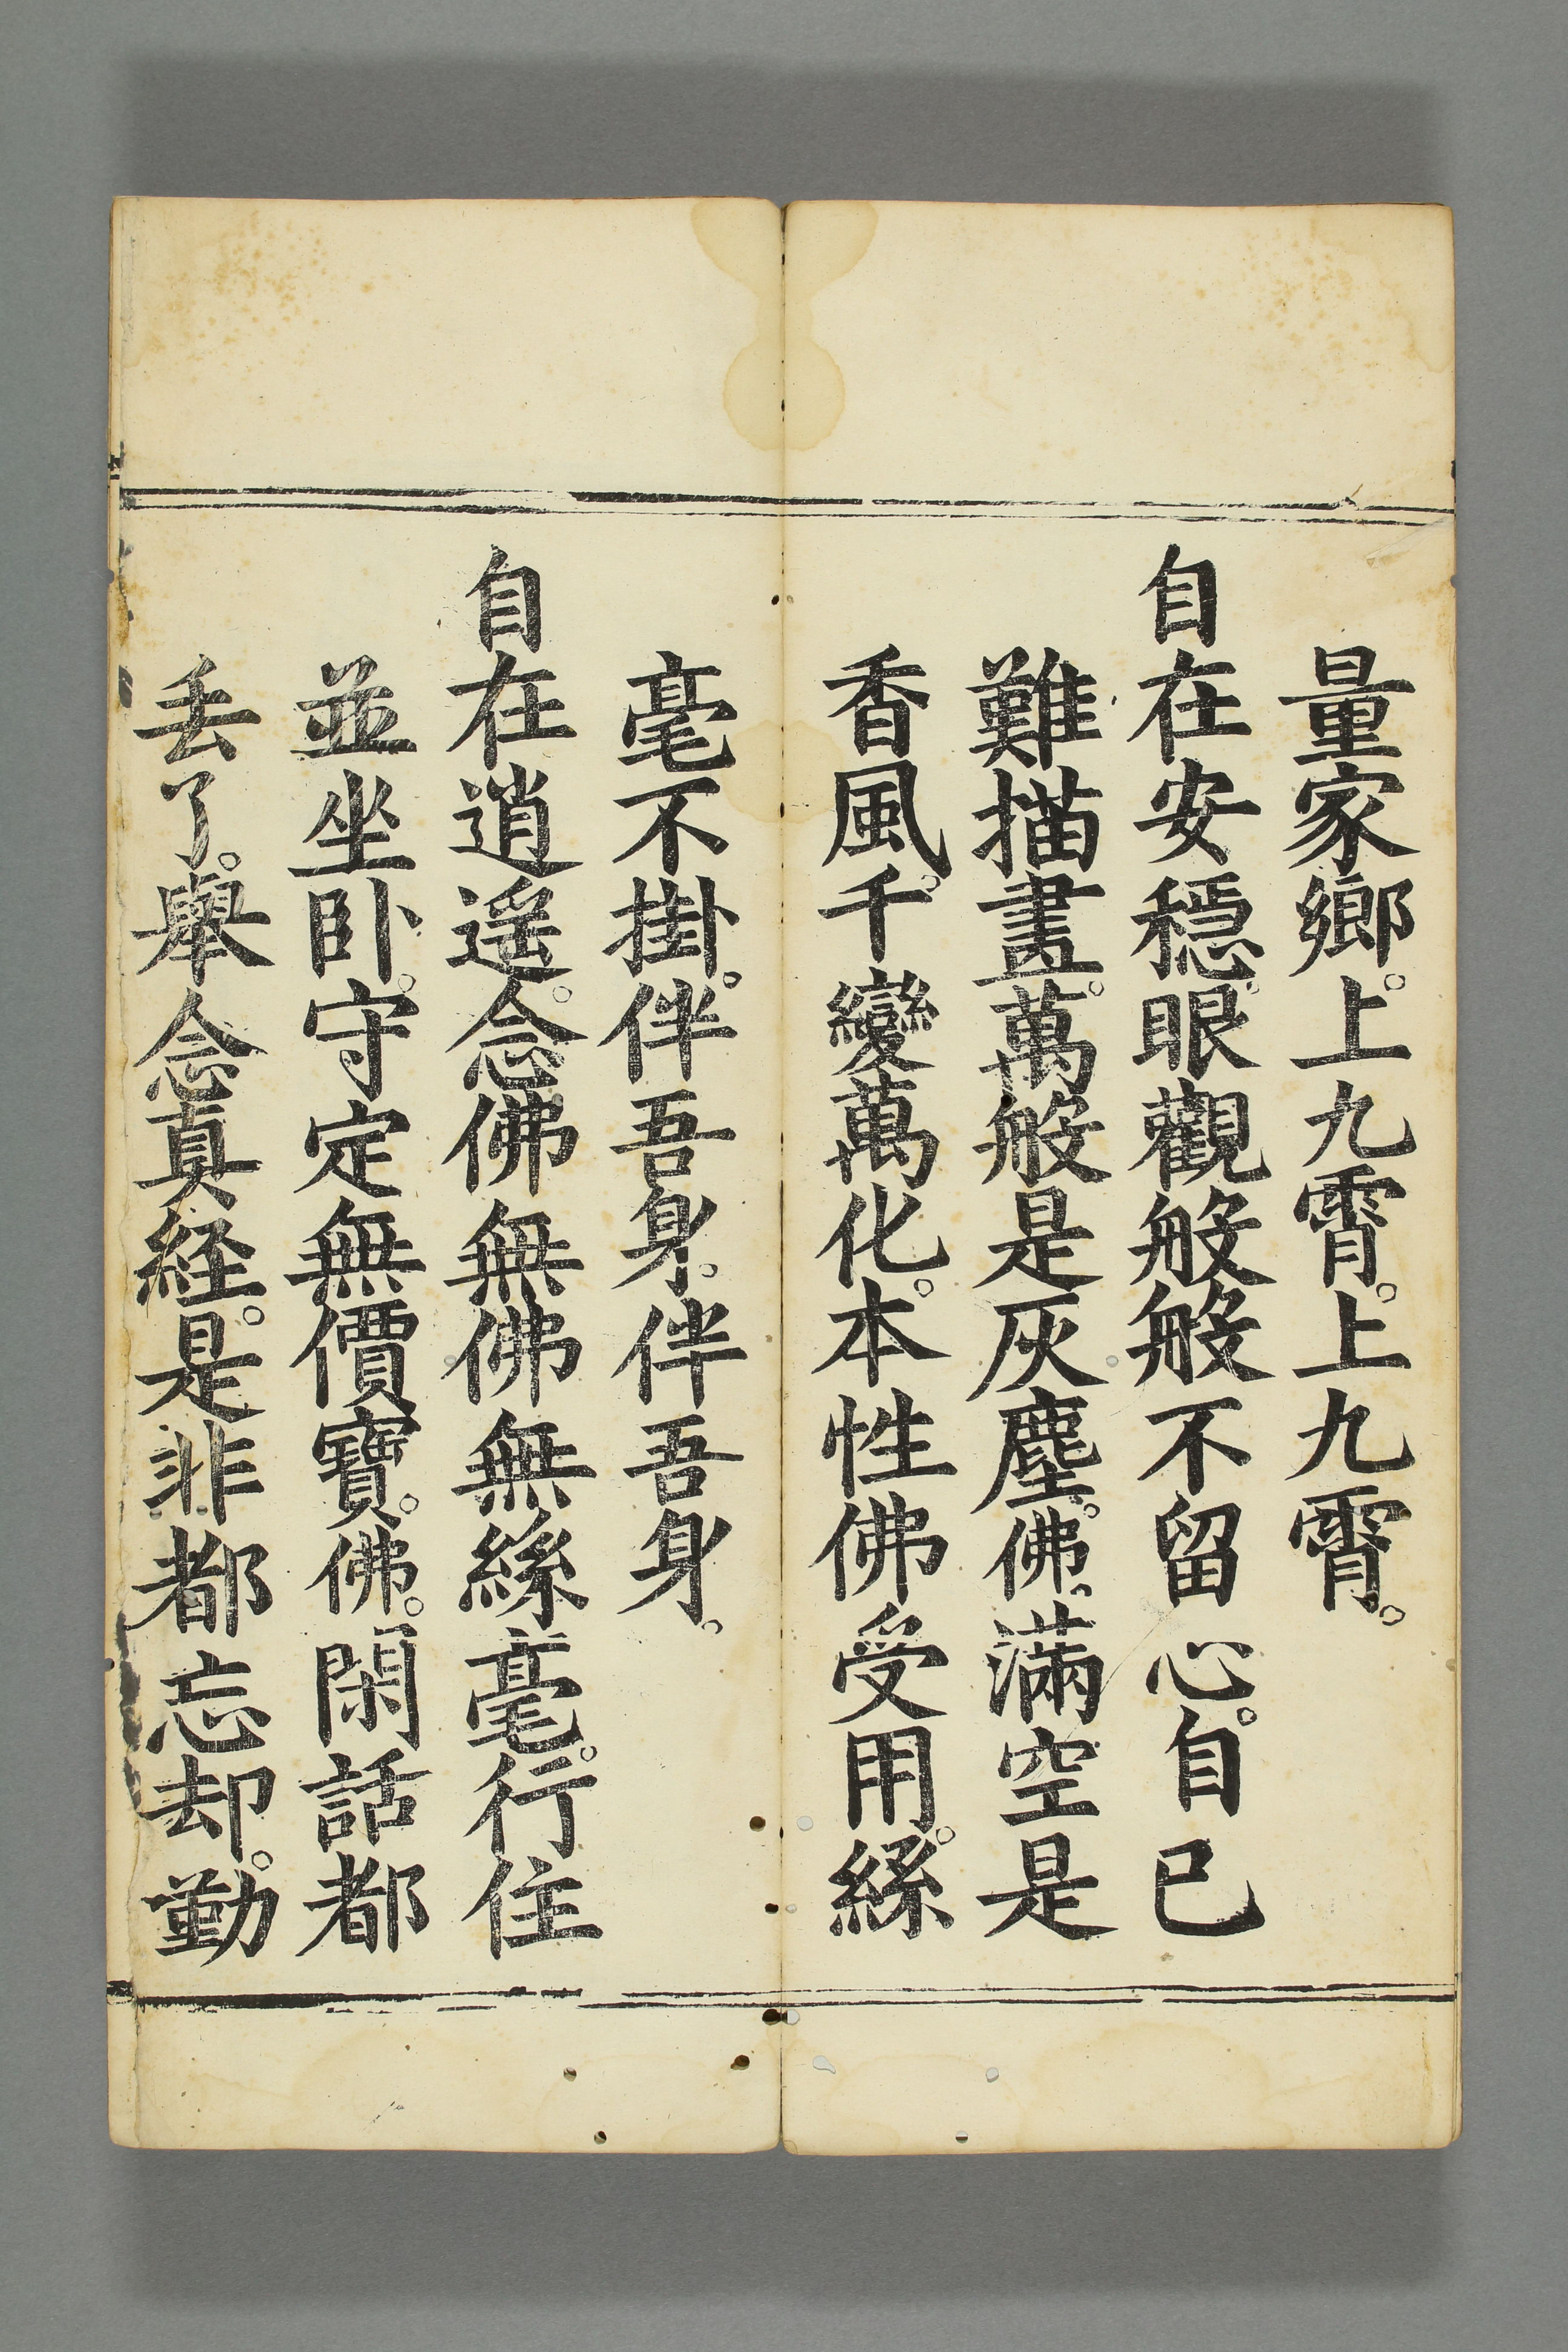 量家鄉。上九霄。上九霄。
自在安穩。眼觀般般不留心。自已
難描畫。萬般是灰塵。佛、滿空是
香風。千變萬化。本性佛受用。絲
毫不掛。伴吾身。伴吾身。
自在逍遥。念佛無佛無絲毫。行住
並坐卧。守定無價寶。佛。閑話都
丢了。舉念真経。是非都忘却。勤